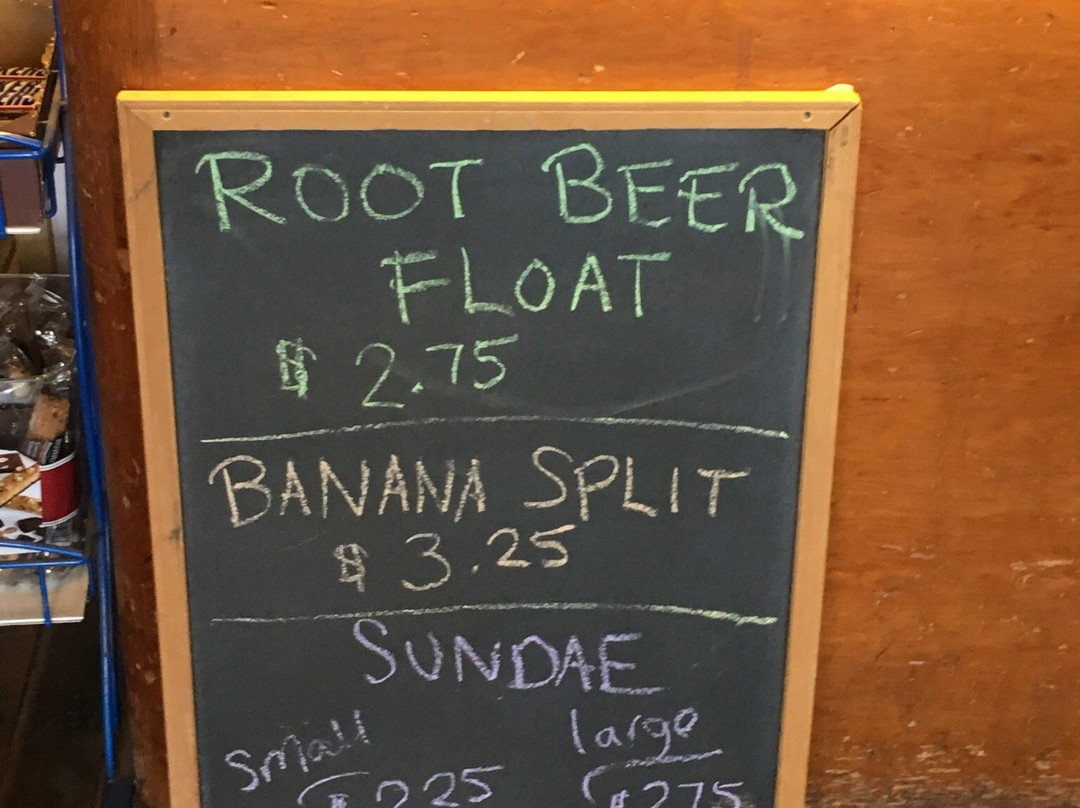 ROOT BEER
FLOAT
$ 2.75
BANANA SPLIT
$ 3.25
SUNDAE
small large
$ 2.25 $ 2.75